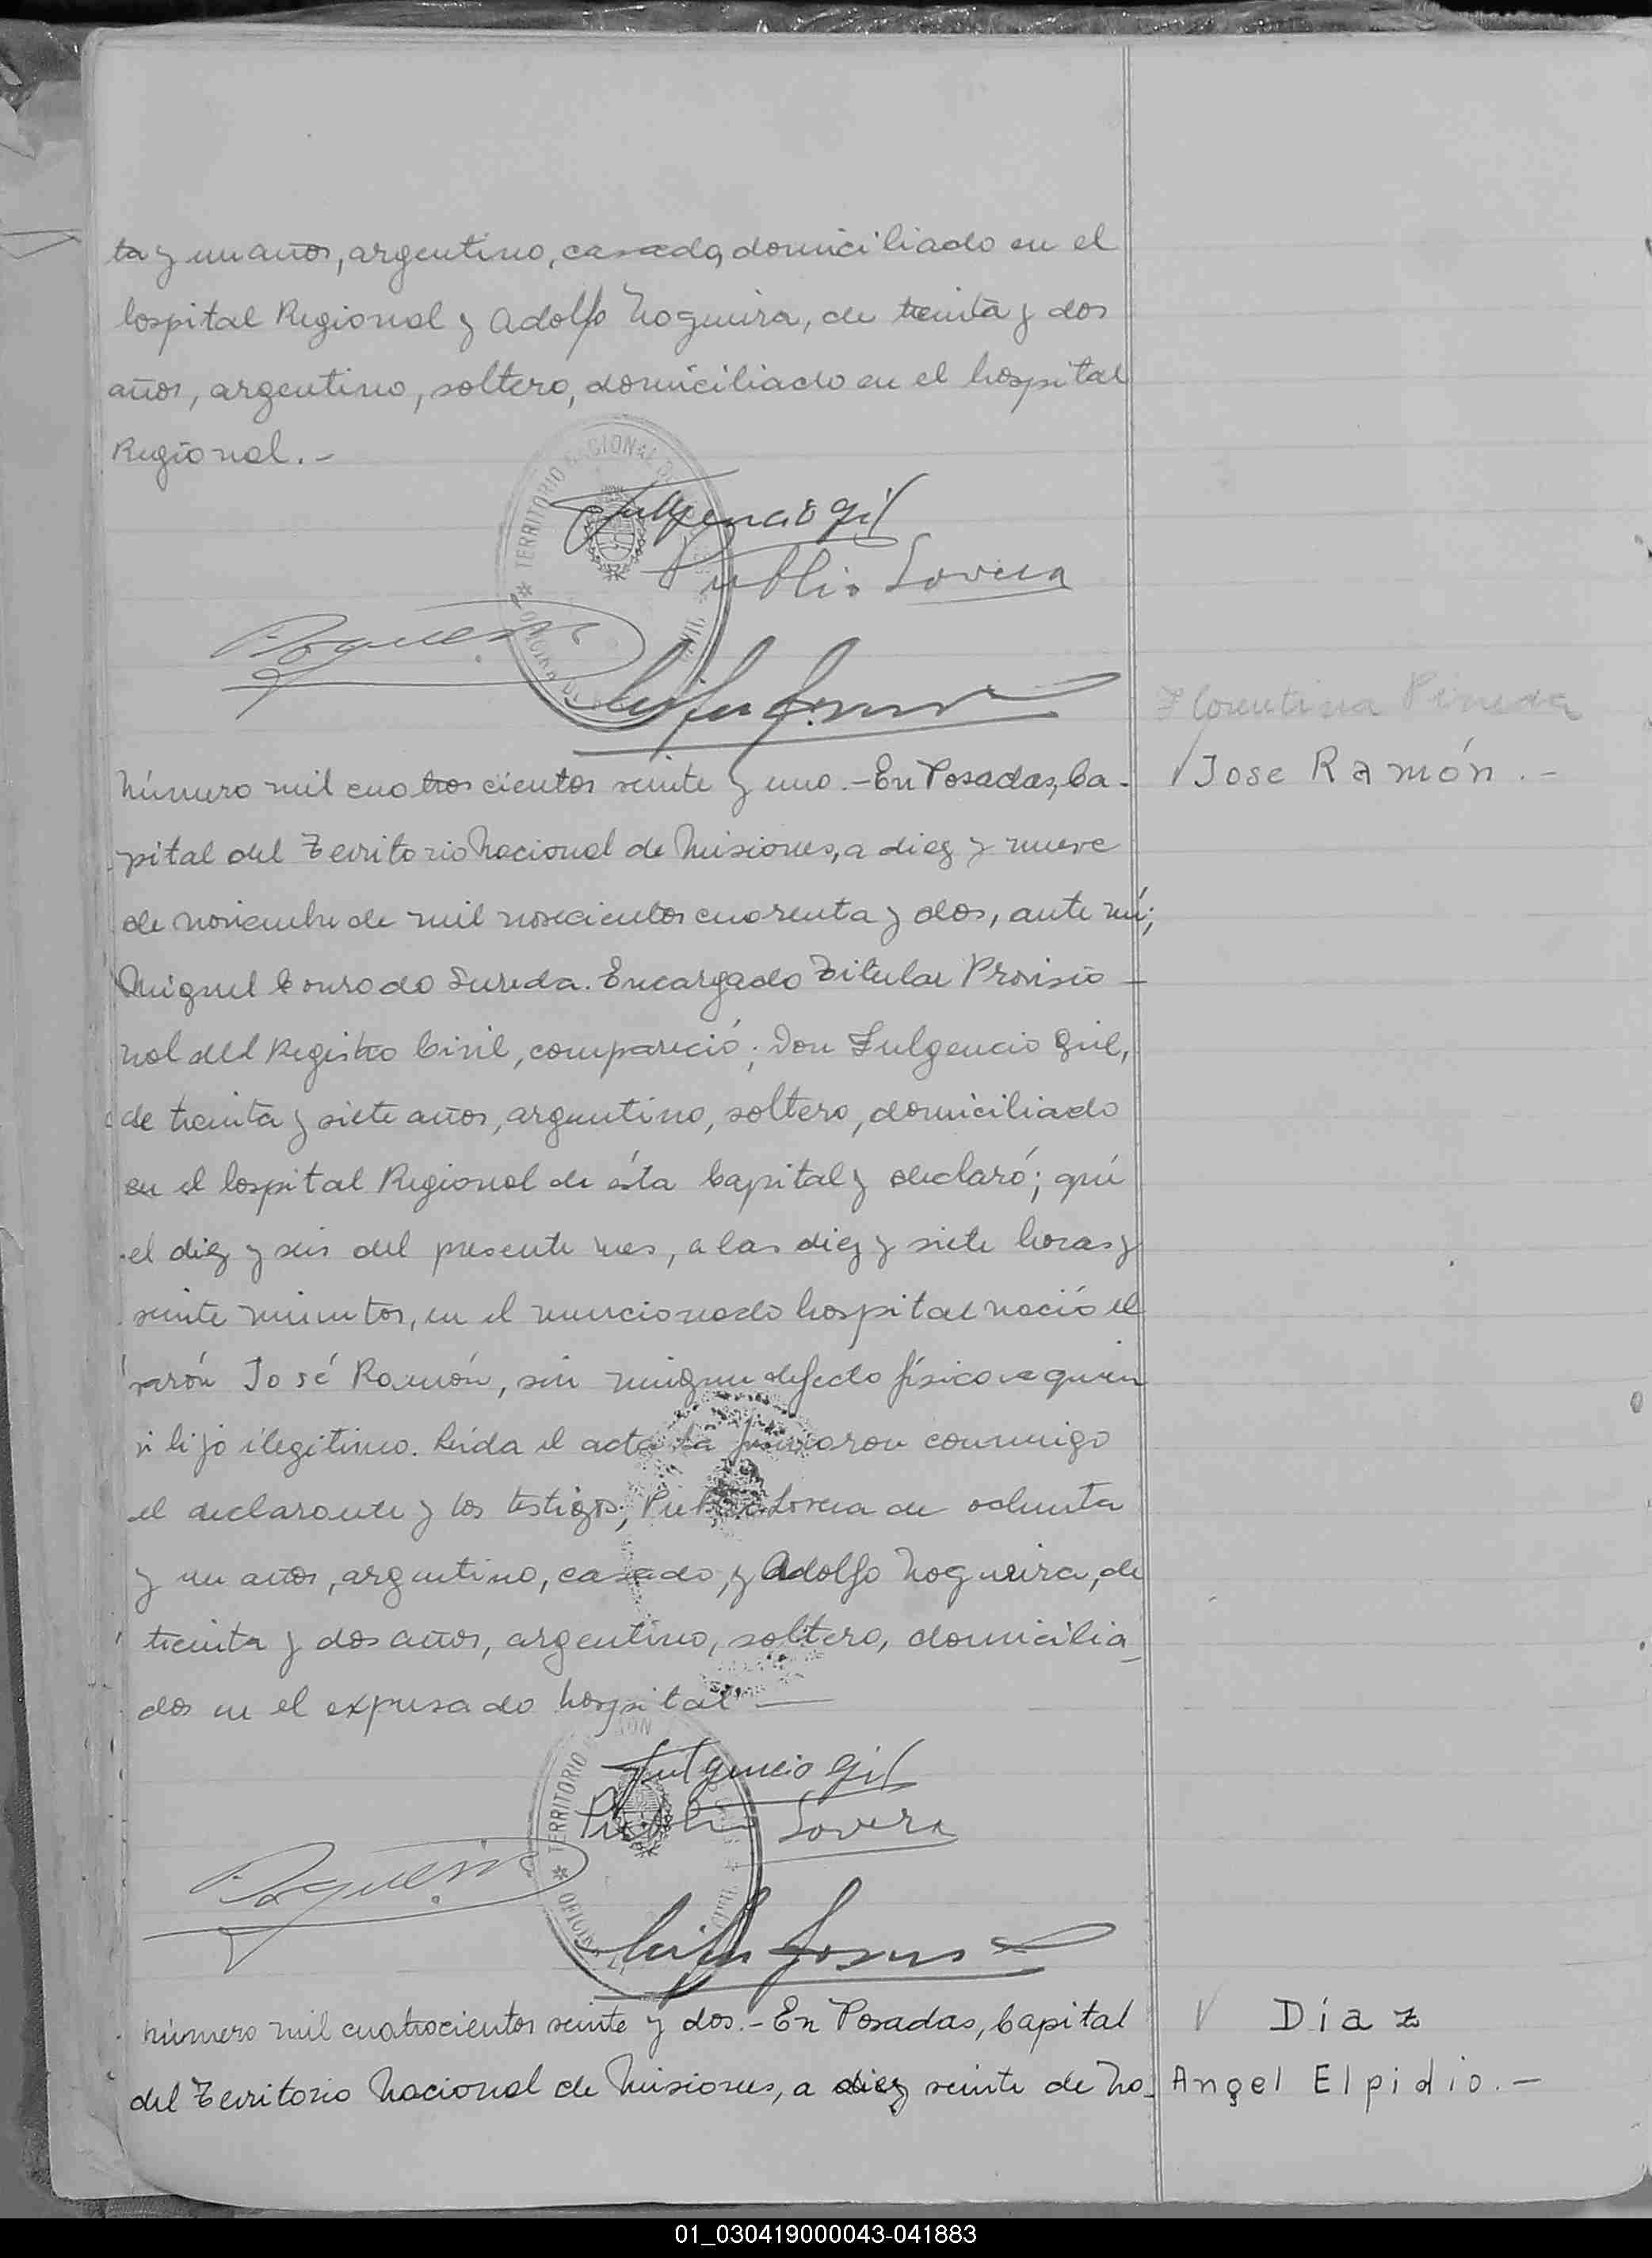 ta y un años, argentino, casado, domiciliado en el
hospital Regional y Adolfo Nogueira, de treinta y dos
años, argentino, soltero, domiciliado en el hospital
Regional.-
TERRITORIO NACIONAL
Fulgencio Gil
Publio Lovera
Florentina Pineda
Número mil cuatros cientos veinte y uno.- En Posadas, Ca-
José Ramón.-
pital del Territorio Nacional de Misiones, a diez y nueve
de noviembre de mil novecientos cuarenta y dos, ante mí;
Miguel Conrado Sureda. Encargado Titular Provisio-
nal del Registro Civil, compareció; Don Fulgencio Gil,
de treinta y siete años, argentino, soltero, domiciliado
en el hospital Regional de ésta Capital y declaró; qué
el diez y seis del presente mes, a las diez y siete horas y
veinte minutos, en el mencionado hospital nació el
varón José Ramón, sin ningun defecto físico
hijo ilegitimo. Leída el acta la firmaron conmigo
el declarante y los testigos; Publio Lovera de ochenta
y un años, argentino, casado, y Adolfo Nogueira, de
treinta y dos años, argentino, soltero, domicilia-
dos en el expresado hospital
TERRITORIO
Fulgencio Gil
Publio Lovera
Número mil cuatrocientos veinte y dos.- En Posadas, Capital
Díaz
del Territorio Nacional de Misiones, a diez veinte de No-
Angel Elpidio.-
01_030419000043-041883